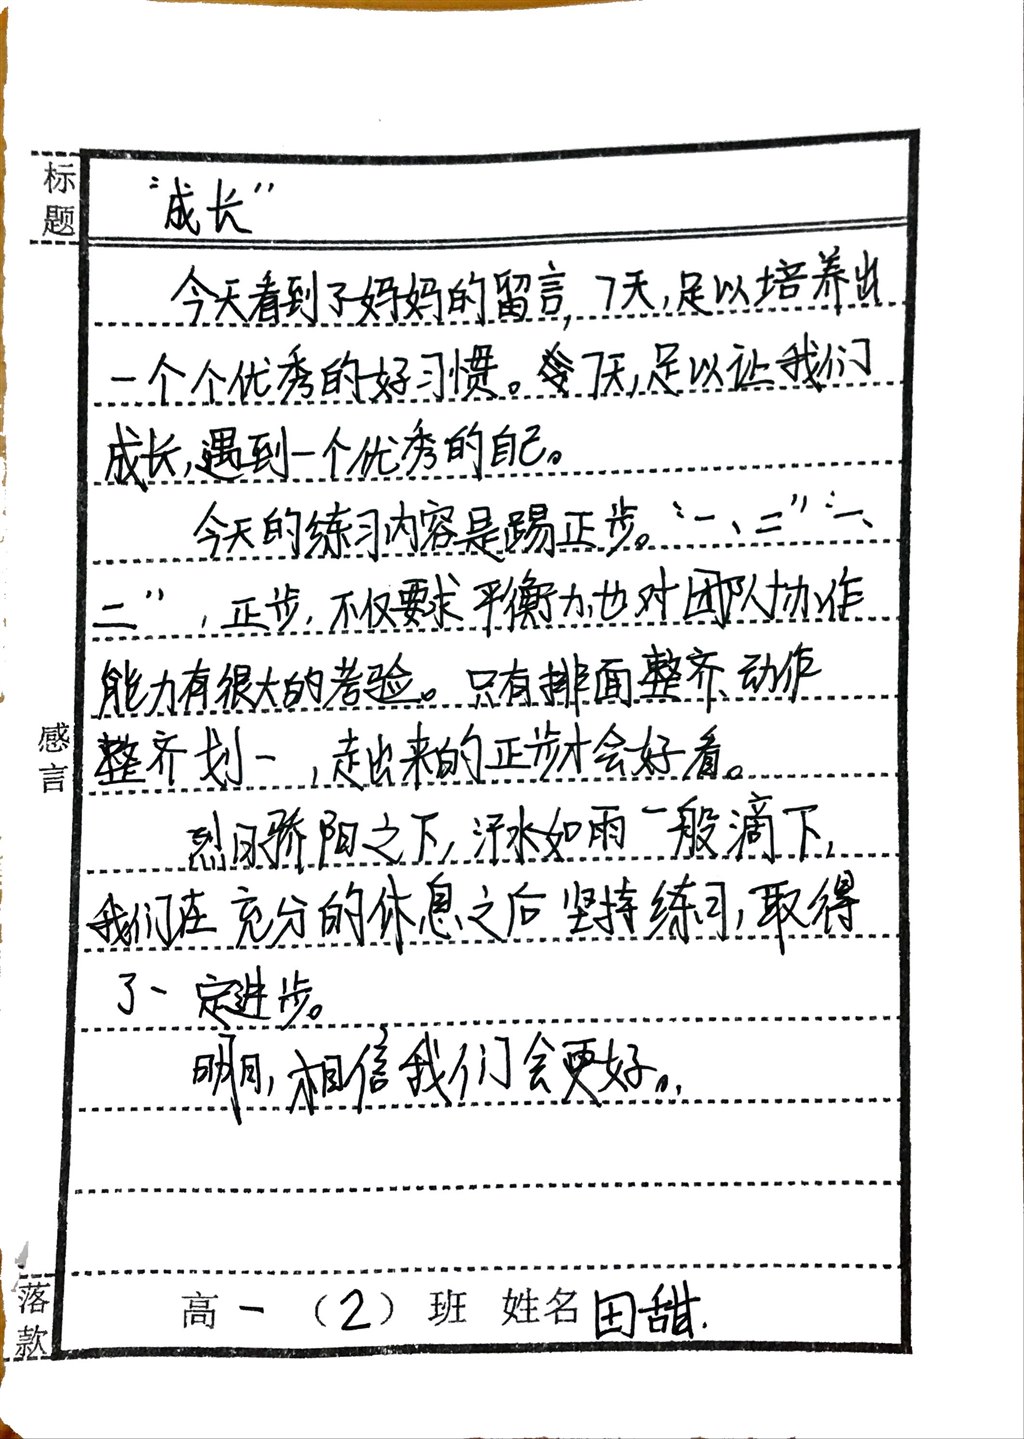 标题
“成长”
今天看到了妈妈的留言，7天，足以培养出
一个个优秀的好习惯。7天，足以让我们
成长，遇到一个优秀的自己。
今天的练习内容是踢正步。“一、二”“一、
二”，正步，不仅要求平衡力也对团队协作
能力有很大的考验。只有排面整齐、动作
整齐划一，走出来的正步才会好看。
感言
烈日骄阳之下，汗水如雨一般滴下，
我们在充分的休息之后坚持练习，取得
了一定进步。
明日，相信我们会更好。
落款
高一（2）班 姓名田甜.